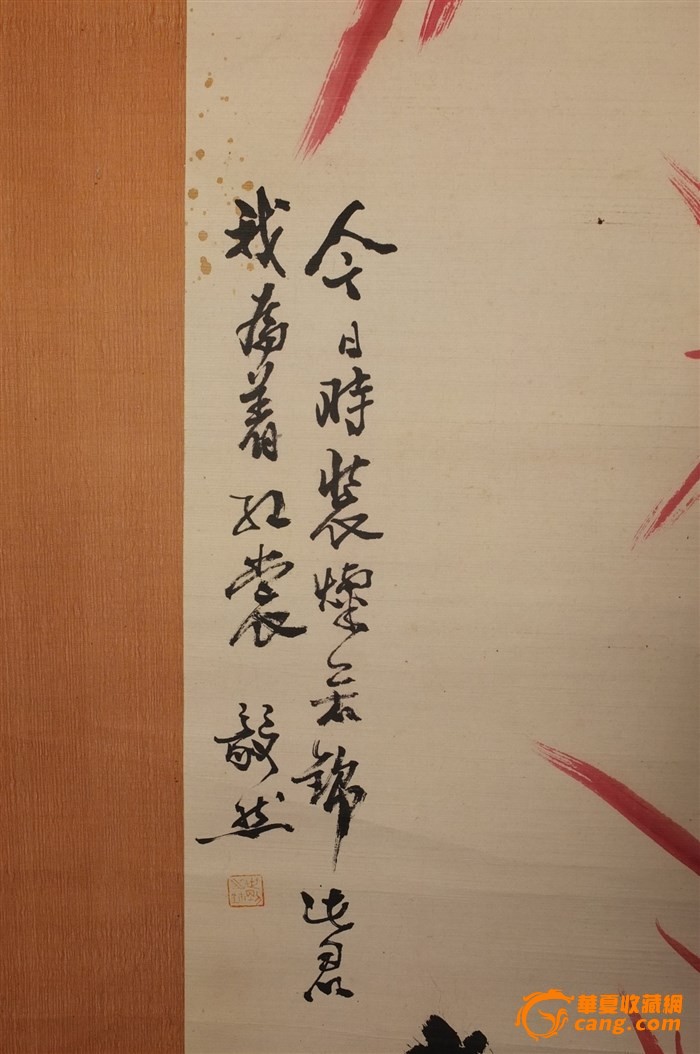 今日時裝燦若錦此君
我為着紅裳 毅然
華夏收藏網
cang.com